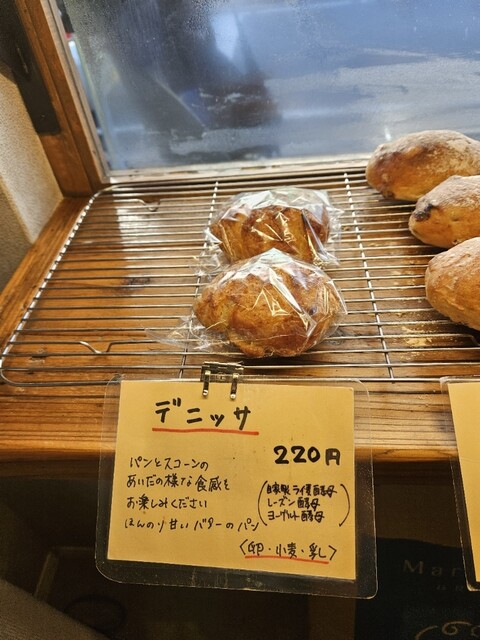 デニッサ
220円
パンとスコーンの
あいだの様な食感を
お楽しみください
ほんのり甘いバターのパン
(自家製 ライ麦酵母
レーズン酵母
ヨーグルト酵母)
〈卵・小麦・乳〉
Mar